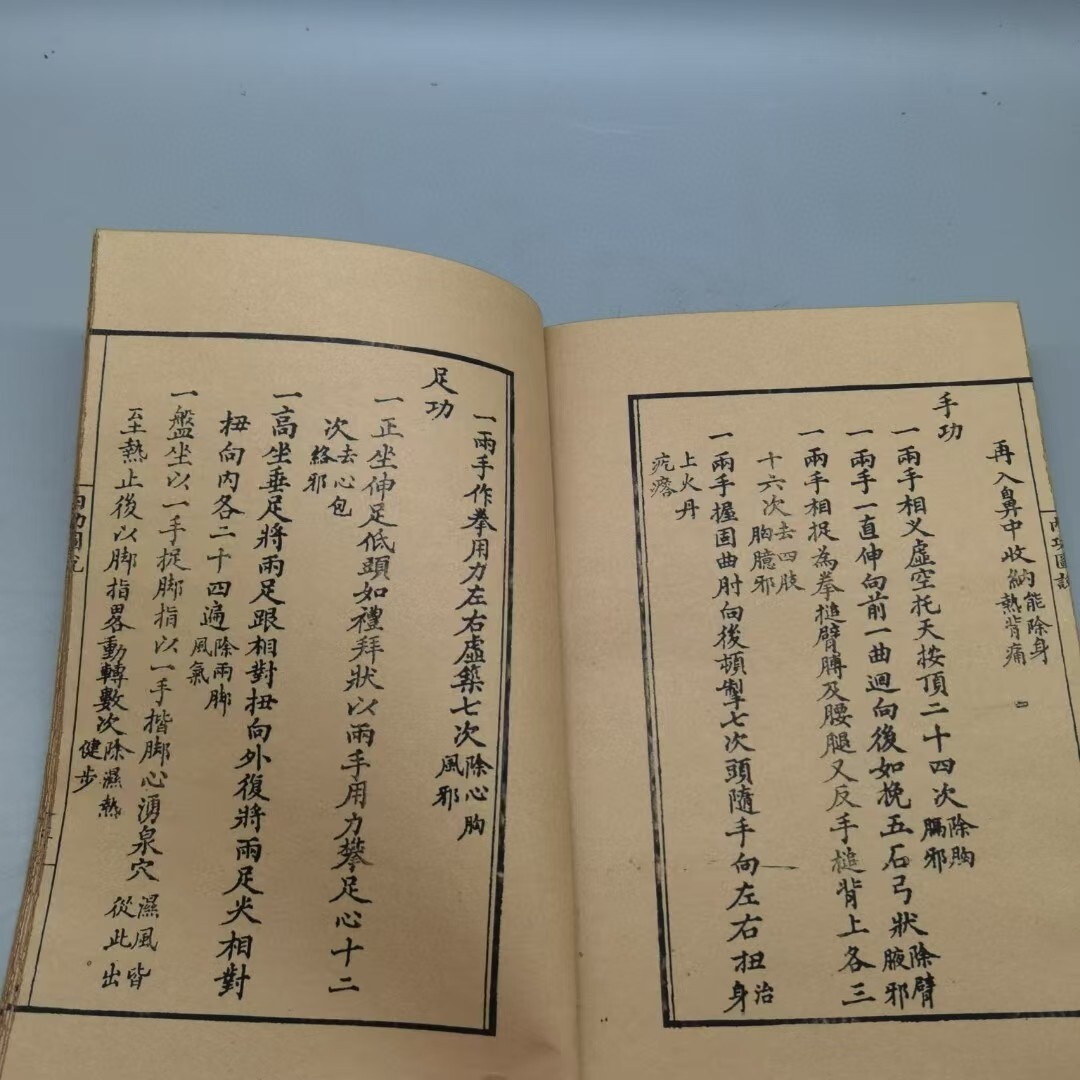 再入鼻中收納能除身熱背痛
手功
一兩手相义虛空托天按頂二十四次除胸膈邪
一兩手一直伸向前一曲迴向後如挽五石弓狀除臂腋邪
一兩手相捉為拳搥臂膊及腰腿又反手搥背上各三
十六次去四肢胸臆邪
一兩手握固曲肘向後頓掣七次頭隨手向左右扭治身
上火丹疙瘩
一兩手作拳用力左右虛築七次除心胸風邪
足功
一正坐伸足低頭如禮拜狀以兩手用力攀足心十二
次去心包絡邪
一高坐垂足將兩足跟相對扭向外復將兩足尖相對
扭向內各二十四遍除兩脚風氣
一盤坐以一手捉脚指以一手揩脚心湧泉穴濕風皆從此出
至熱止後以脚指畧動轉數次除濕熱健步
內功圖說
內功圖說